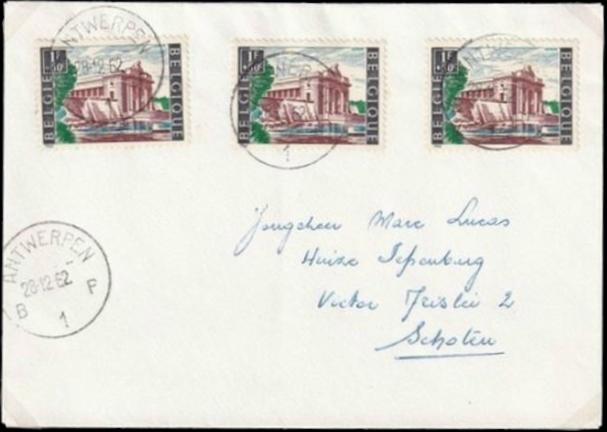 ANTWERPEN
28-12-62
1F
50c
BELGIE
BELGIQUE
1F
50c
BELGIE
BELGIQUE
1
1F
50c
BELGIE
BELGIQUE
ANTWERPEN
28-12-62
B F
1
Marc Lucas
Huize
Victor 2
Schoten